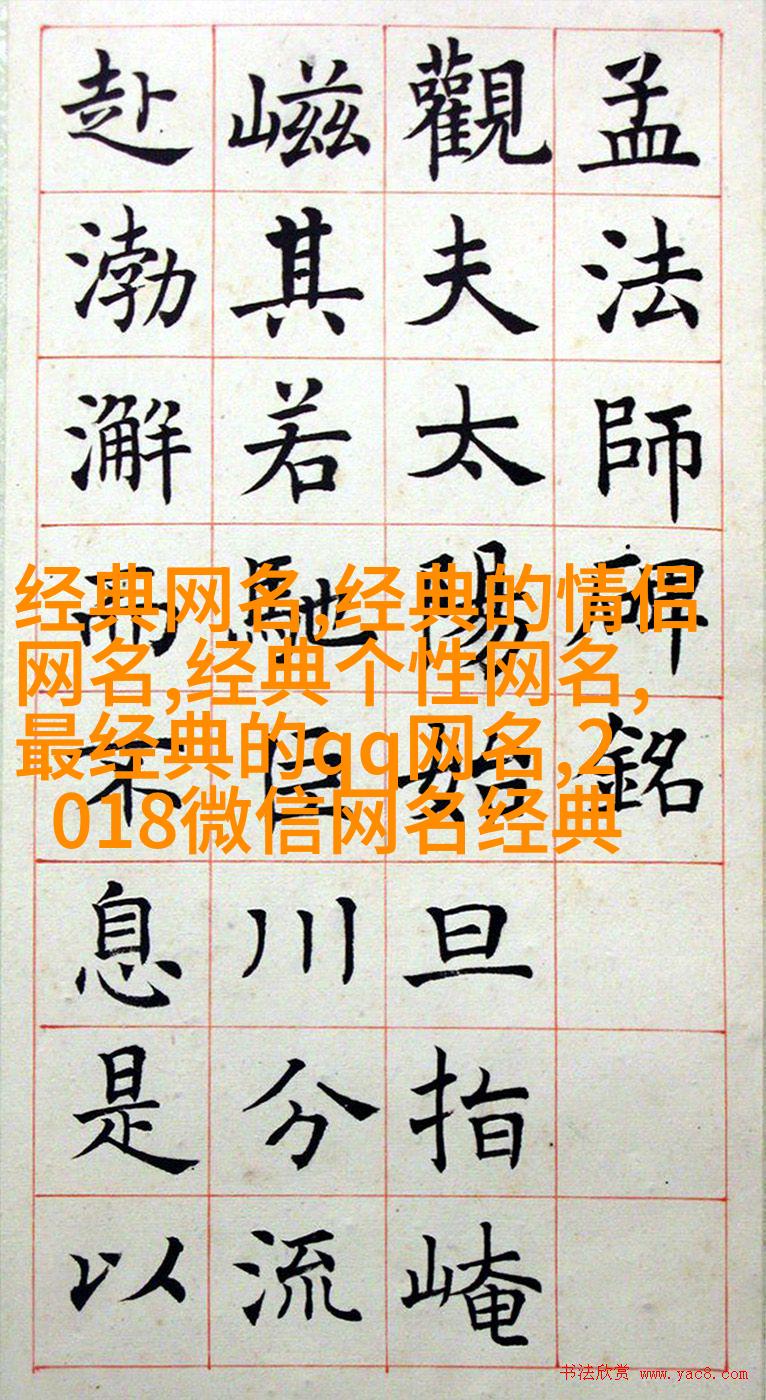 孟法師碑銘
觀夫太陽始旦指崦
嵫其若馳巨川分流
赴渤澥而不息是以
经典网名,经典的情侣
网名,经典个性网名,
最经典的qq网名,2
018微信网名经典
书法欣赏 www.yac8.com